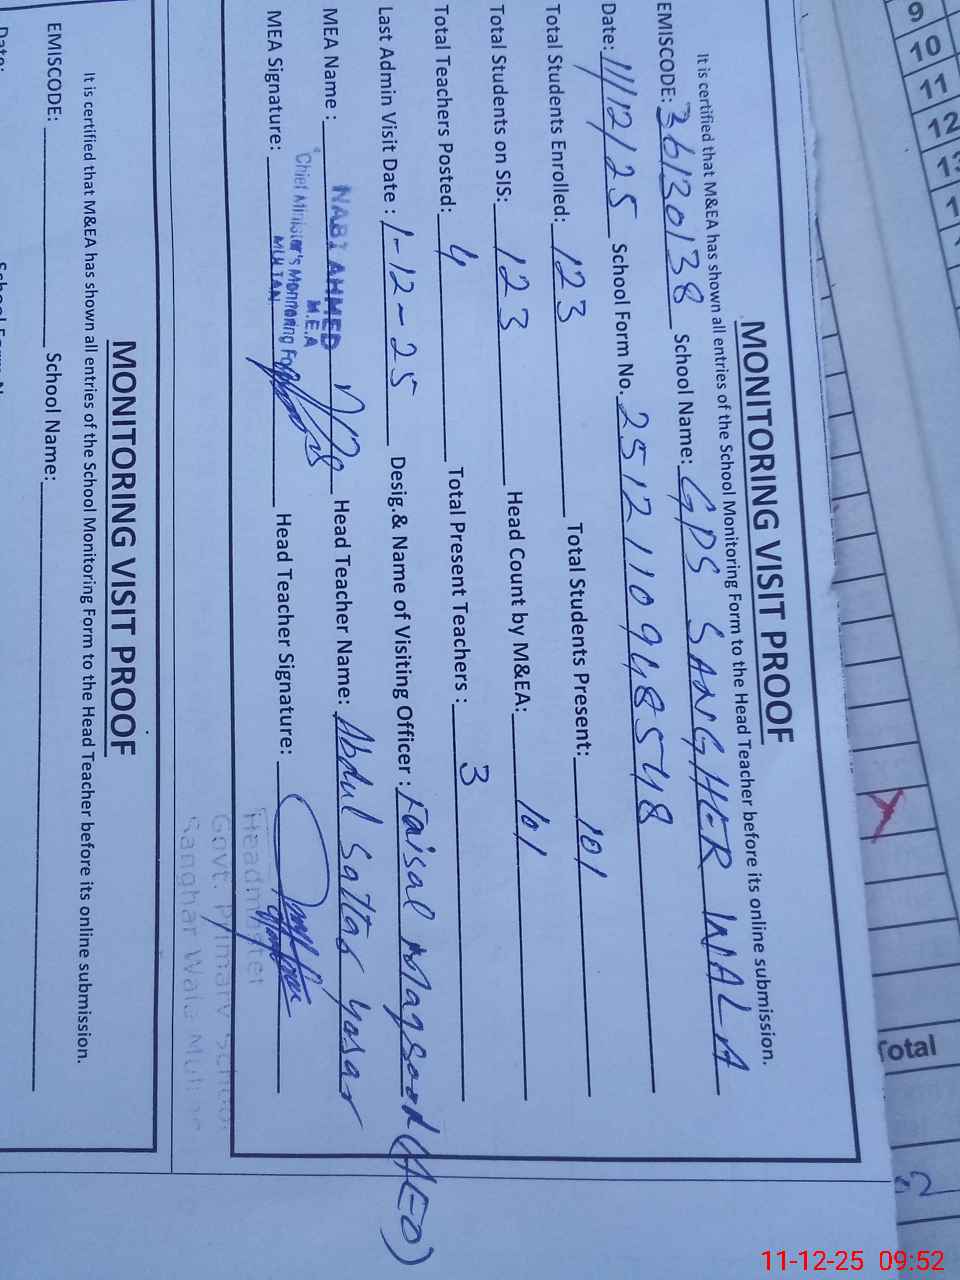 9
10
11
12
Total
MONITORING VISIT PROOF
It is certified that M&EA has shown all entries of the School Monitoring Form to the Head Teacher before its online submission.
EMISCODE: 36130138 School Name: GPS SANGHER WALA
Date: 11/12/25 School Form No. 2512110948548
Total Students Enrolled: 123 Total Students Present: 101
Total Students on SIS: 123 Head Count by M&EA: 101
Total Teachers Posted: 4 Total Present Teachers : 3
Last Admin Visit Date : 1-12-25 Desig.& Name of Visiting Officer : Faisal Maqsood (AEO)
MEA Name : NABI AHMED Head Teacher Name: Abdul Sattar Yasar
M.E.A
Chief Minister's Monitoring Force
MULTAN
MEA Signature: Head Teacher Signature:
Headmaster
Govt. Primary School
Sanghar Wala Multan
MONITORING VISIT PROOF
It is certified that M&EA has shown all entries of the School Monitoring Form to the Head Teacher before its online submission.
EMISCODE: School Name:
Date:
11-12-25 09:52